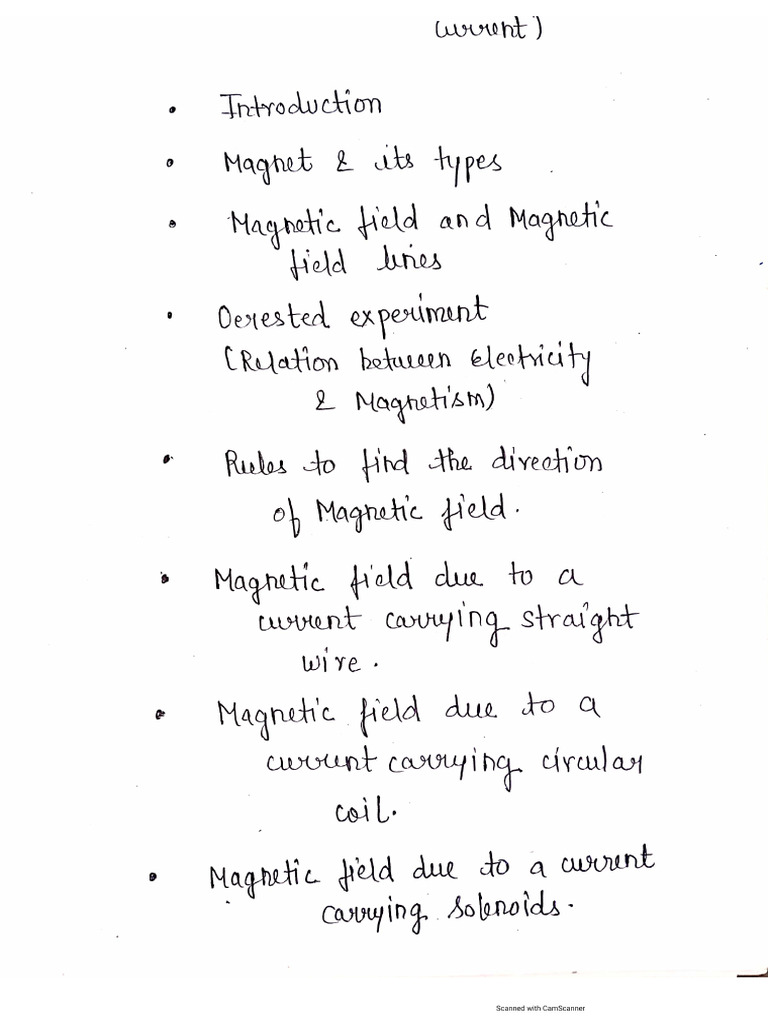 Current)
• Introduction
• Magnet & its types
• Magnetic field and Magnetic
field lines
• Oerested experiment
(Relation between Electricity
& Magnetism)
• Rules to find the direction
of Magnetic field.
• Magnetic field due to a
current carrying straight
wire.
• Magnetic field due to a
current carrying circular
coil.
• Magnetic field due to a current
carrying solenoids.
Scanned with CamScanner